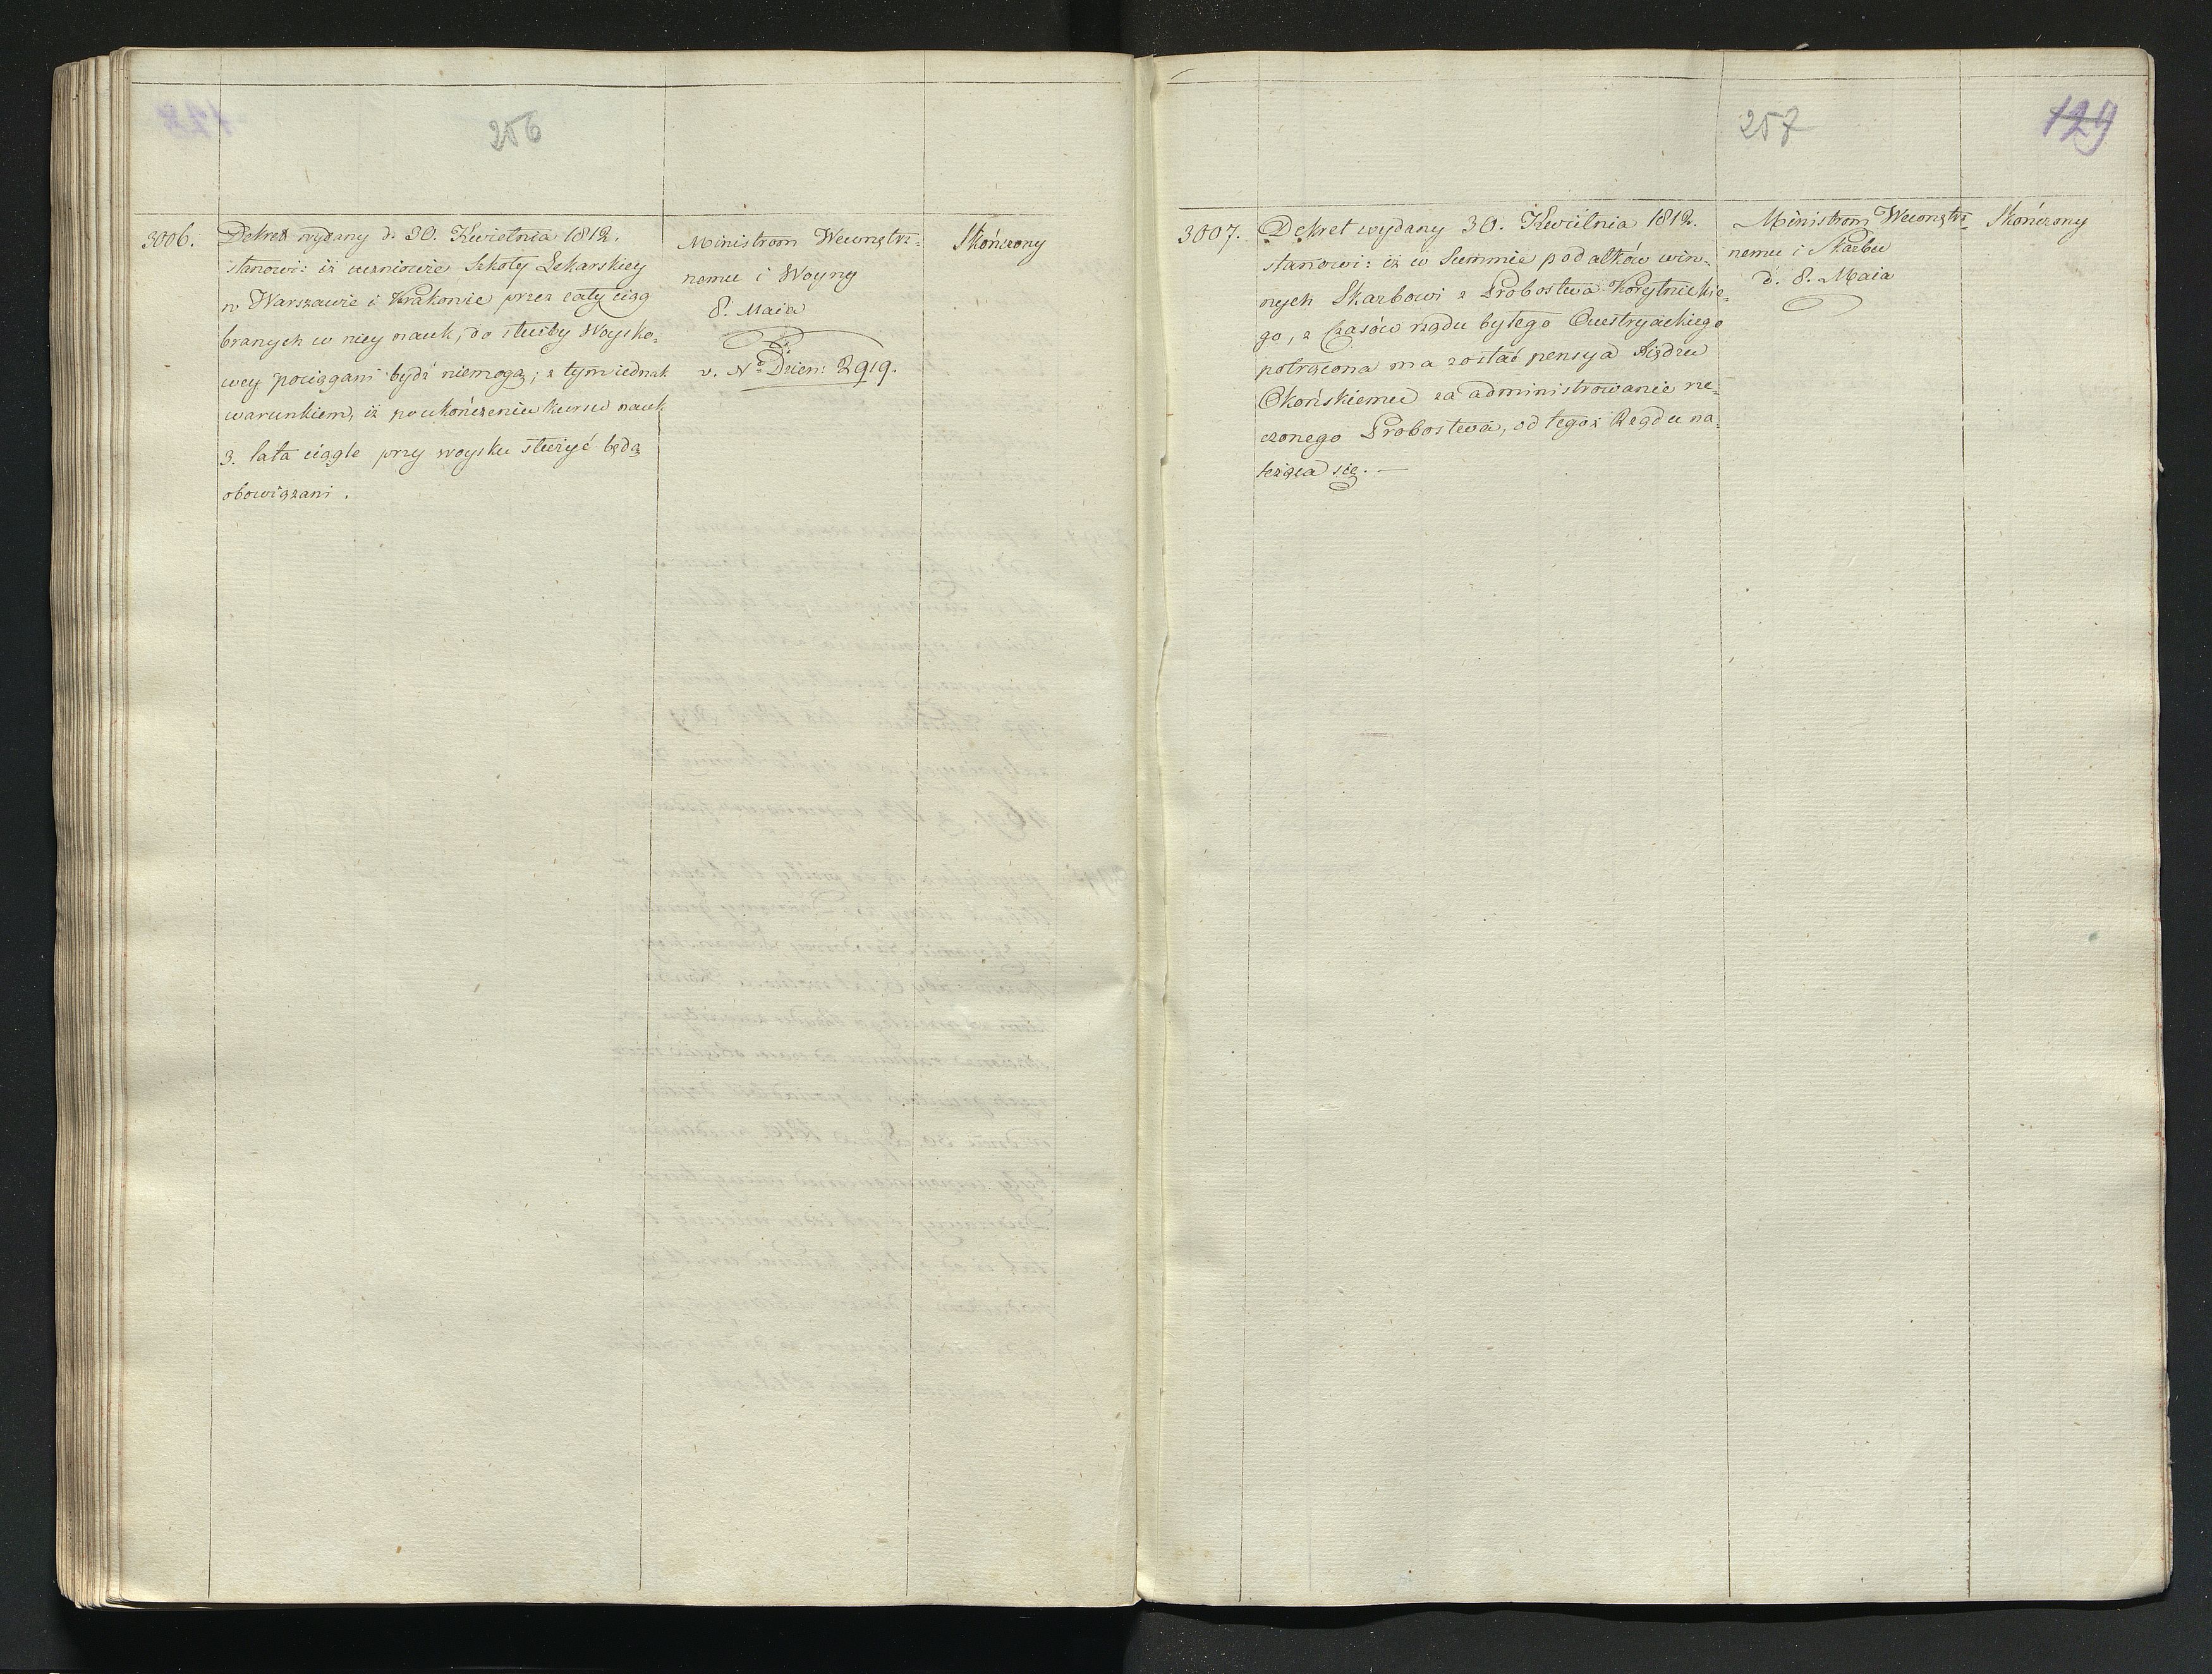 256
3006.
Dekret wydany d. 30. Kwietnia 1812.
stanowi: iż uczniowie Szkoły Lekarskiey
w Warszawie i Krakowie przez cały ciąg
branych w niey nauk, do służby Woysko-
wey pociągani bydź niemogą; z tym iednak
warunkiem, iż po ukończeniu kursu nauk
3. lata ciągle przy woysku służyć będą
obowiązani.
Ministrom Wewnętrz-
nemu i Woyny
8. Maia
v. No Dzien: 2919.
Skończony
257
129
3007.
Dekret wydany 30. Kwietnia 1812.
stanowi: iż w Summie podatków win-
nych Skarbowi z Probostwa Korytnickie-
go, z czasów rządu byłego Austryackiego
potrącona ma zostać pensya Xiędzu
Okońskiemu za administrowanie rze-
czonego Probostwa, od tegoż Rządu na-
leżąca się. —
Ministrom Wewnętrz-
nemu i Skarbu
d. 8. Maia
Skończony